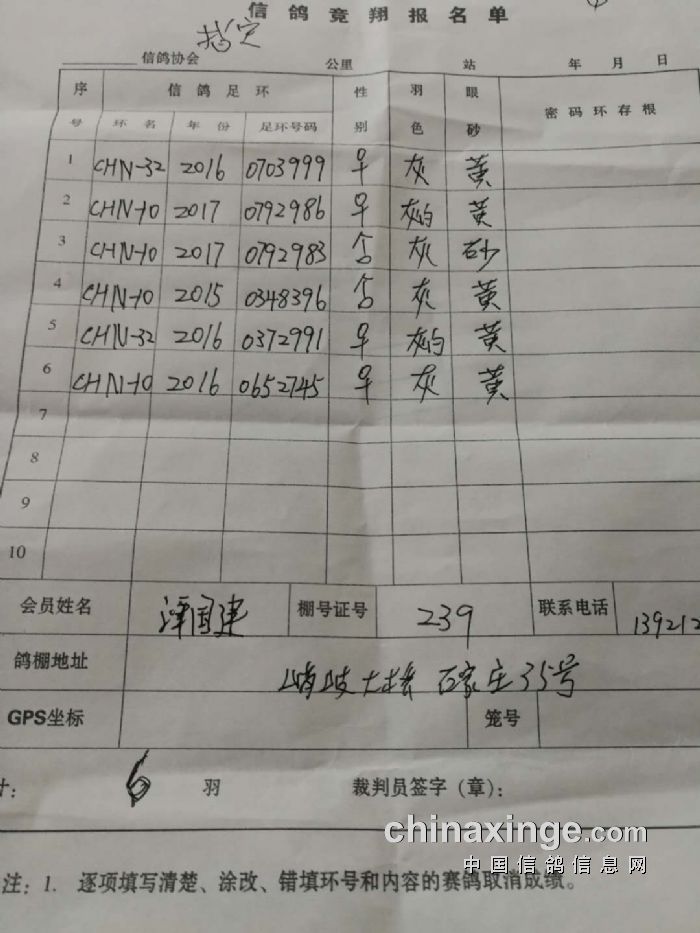 信鸽竞翔报名单
指定
信鸽协会 公里 站 年 月 日
序号 信鸽足环 性别 羽色 眼砂 密码环存根
环名 年份 足环号码
1 CHN-32 2016 0703999 早 灰 黄
2 CHN-10 2017 0792986 早 灰 黄
3 CHN-10 2017 0792983 灰 砂
4 CHN-10 2015 0348396 灰 黄
5 CHN-32 2016 0372991 早 黄
6 CHN-10 2016 0652745 早 灰 黄
7
8
9
10
会员姓名 国建 棚号证号 239 联系电话 139212
鸽棚地址 大桥 石家庄35号
GPS坐标 笼号
计: 6 羽 裁判员签字(章):
chinaxinge.com
中国信鸽信息网
注: 1. 逐项填写清楚、涂改、错填环号和内容的赛鸽取消成绩。